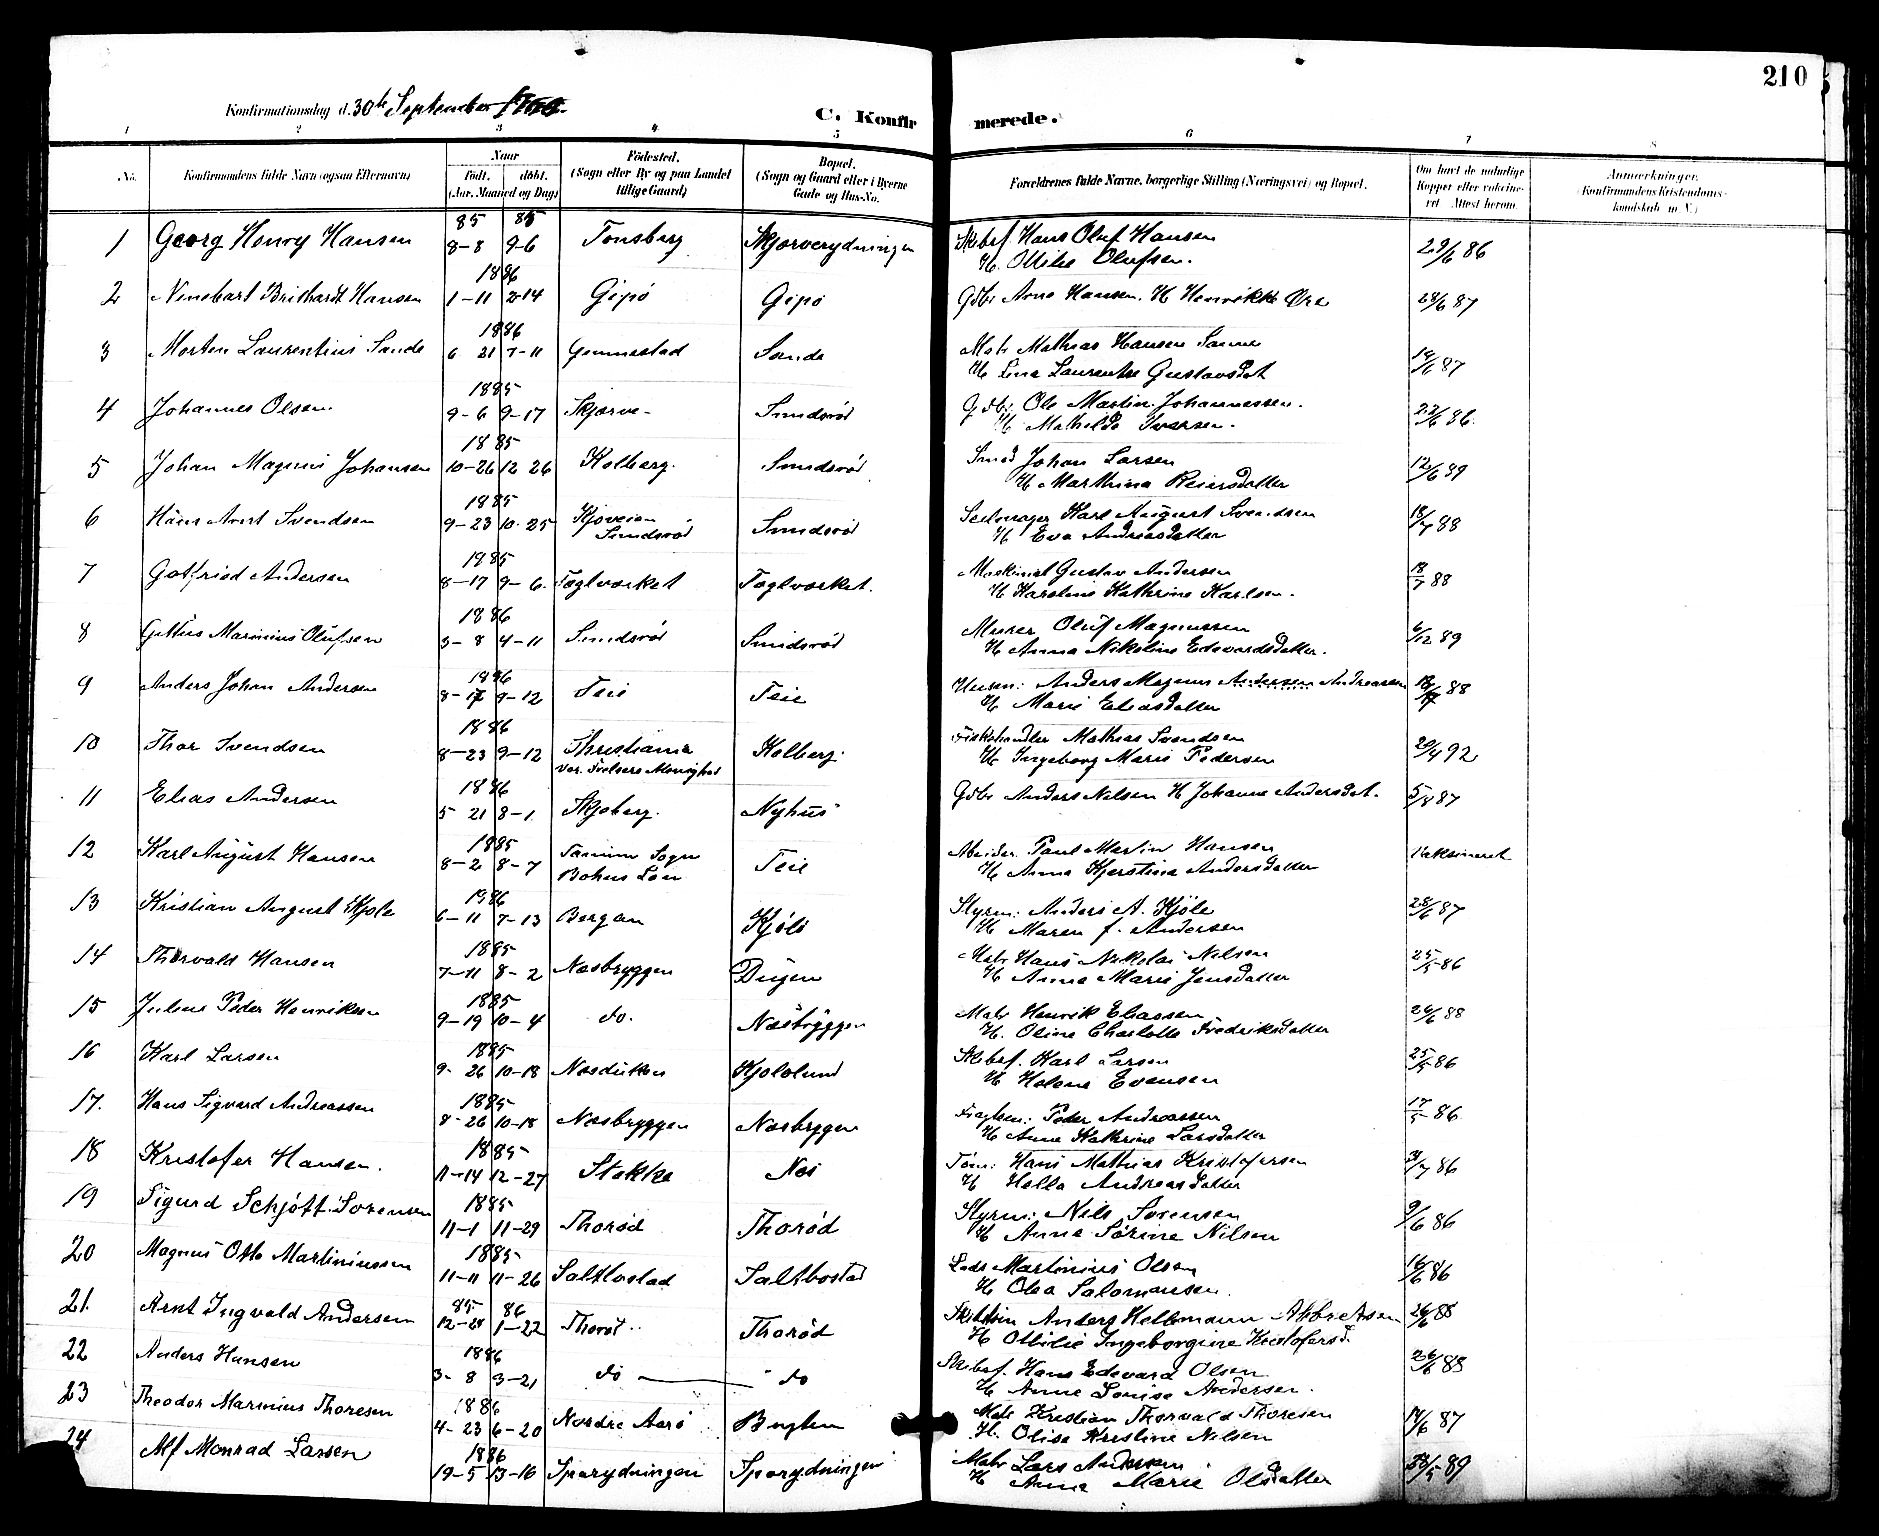 210
Konfirmationsdag d. 30te September 1900.
C. Konfirmerede.
1 2 3 4 5 6 7 8
No.
Konfirmandens fulde Navn (ogsaa Efternavn)
Naar
Födt. döbt.
(Aar. Maaned og Dag)
Födested.
(Sogn eller By og paa Landet
tillige Gaard)
Bopæl.
(Sogn og Gaard eller i Byerne
Gade og Hus-No.
Forældrenes fulde Navne, borgerlige Stilling (Næringsvei) og Bopæl.
Om havt de naturlige
Kopper eller vaccine-
ret. Attest herom.
Anmærkninger.
(Konfirmandens Kristendoms-
kundskab m. V.)
1 Georg Henry Hansen 85 8-8 85 9-6 Tonsberg Skjærverydningen
Skbef. Hans Oluf Hansen
H. Ottilie Olufsen. 29/6 86
2 Hansen 1886 1-11 2-14 Gipö Gipö
Gdbr Arne Hansen. H 28/6 87
3 Morten Laurentius Sande 1886 6 21 7-11 Gennestad Sande
Matr Mathias Hansen
H Lina Laurentze Gustavsdat 87
4 Johannes Olsen. 1885 9-6 9-17 Skjærve- Smidsröd
Gdbr. Ole Martin Johannessen.
H Mathilde Iversen. 22/6 86.
5 Johan Magnus Johansen 1885 10-26 12 26 Kolberg. Smidsröd
Smed Johan Larsen
H Marthina Reiersdatter 12/6 89
6 Hans Arnt Svendsen 1885 9-23 10-25 Kjoveien
Smidsröd Smidsröd
Karl August Svendsen
H Eva Andreasdatter 88
7 Gotfried Andersen 1985 8-17 9-6. Taglværket Taglværket.
Maskinist Gustav Andersen
H Karoline Kathrine Karlsen. 18/7 88
8 Marinius Olufsen 1886 3-8 4-11 Smidsröd Smidsröd
Murer Oluf Magnussen
H Anna Nikoline Edevardsdatter. 6/12 89
9 Anders Johan Andersen 1886 8-17 9-12 Teie Teie
Husm: Anders Magnus Andersen Andreasen
H Marie Eliasdatter 88
10 Thor Svendsen 1886 8-23 9-12 Christiania
Frelsers Menighed Kolberg.
Fiskehandler Mathias Svendsen
H Ingeborg Marie Pedersen 92
11 Elias Andersen 1886 5 21 8-1. Skjeberg. Nyhus
Gdbr Anders Nilsen H Johanne Andersdat. 87
12 Karl August Hansen 1885 8-2 8-7 Tanum Sogn
Bohus Len Teie
Arbeider. Paul Martin Hansen
H Anna Kjerstina Andersdatter Vaksineret
13 Kristian August Kjöle 1986 6-11 7-13 Bergan Kjöle
Styrm: Anders A. Kjöle
H Maren f. Andersen 28/6 87
14 Thorvald Hansen 1885 7-11 8-2 Næsbryggen Dugen
Matr Hans Nikolai Nilsen
H Anna Marie Jensdatter 25/5 86
15 Julius Peder Henriksen 1885 9-19 10-4 do. Næsbryggen
Matr Henrik Eliassen
H. Oline Charlotte Fredriksdatter 26/6 88
16 Karl Larsen 1885 9-26 10-18 Kjölelund
Skbef. Karl Larsen
H Helene Evensen 25/5 86
17. Hans Sigvard Andreassen 1885 8-26 10-18 Næsbryggen Næsbrygen
Peder Andreassen
H Anne Kathrine Larsdatter 17/5 86.
18 Kristofer Hansen. 1885 11-14 12-27 Stokke Næs
Töm: Hans Mathias Kristofersen
H Helle Andreasdatter 86
19 Sigurd Schjött Sorensen 1885 11-1 11-29 Thoröd Thoröd
Styrm: Nils Sorensen
H Anne Sörine Nilsen 9/6 86
20 Magnus Otto Martiniussen 1885 11-11 11-26 Saltbostad Saltbostad
Lods Martinius Olsen
H Olea Salomonsen. 16/6 86
21. Arnt Ingvald Andersen 85 12-24 86 1-22 Thoröd Thoröd
Anders
H Ottilie Ingeborgine Kristofersd. 26/6 88
22 Anders Hansen 1886 3-8 3-21 do do
Skbef. Hans Edevard Olsen
H Anne Lovise Andersen. 26/6 88
23 Theodor Marinius Thoresen 1886 4-23 6-20 Nordre Aarö Bugten
Matr Kristian Thorvald Thoresen
H. Olise Kristine Nilsen 14/6 87
24 Alf Monrad Larsen 1886 Sporydningen Sporydningen
Matr Lars Andersen
H Anna Marie Olsdatter 89